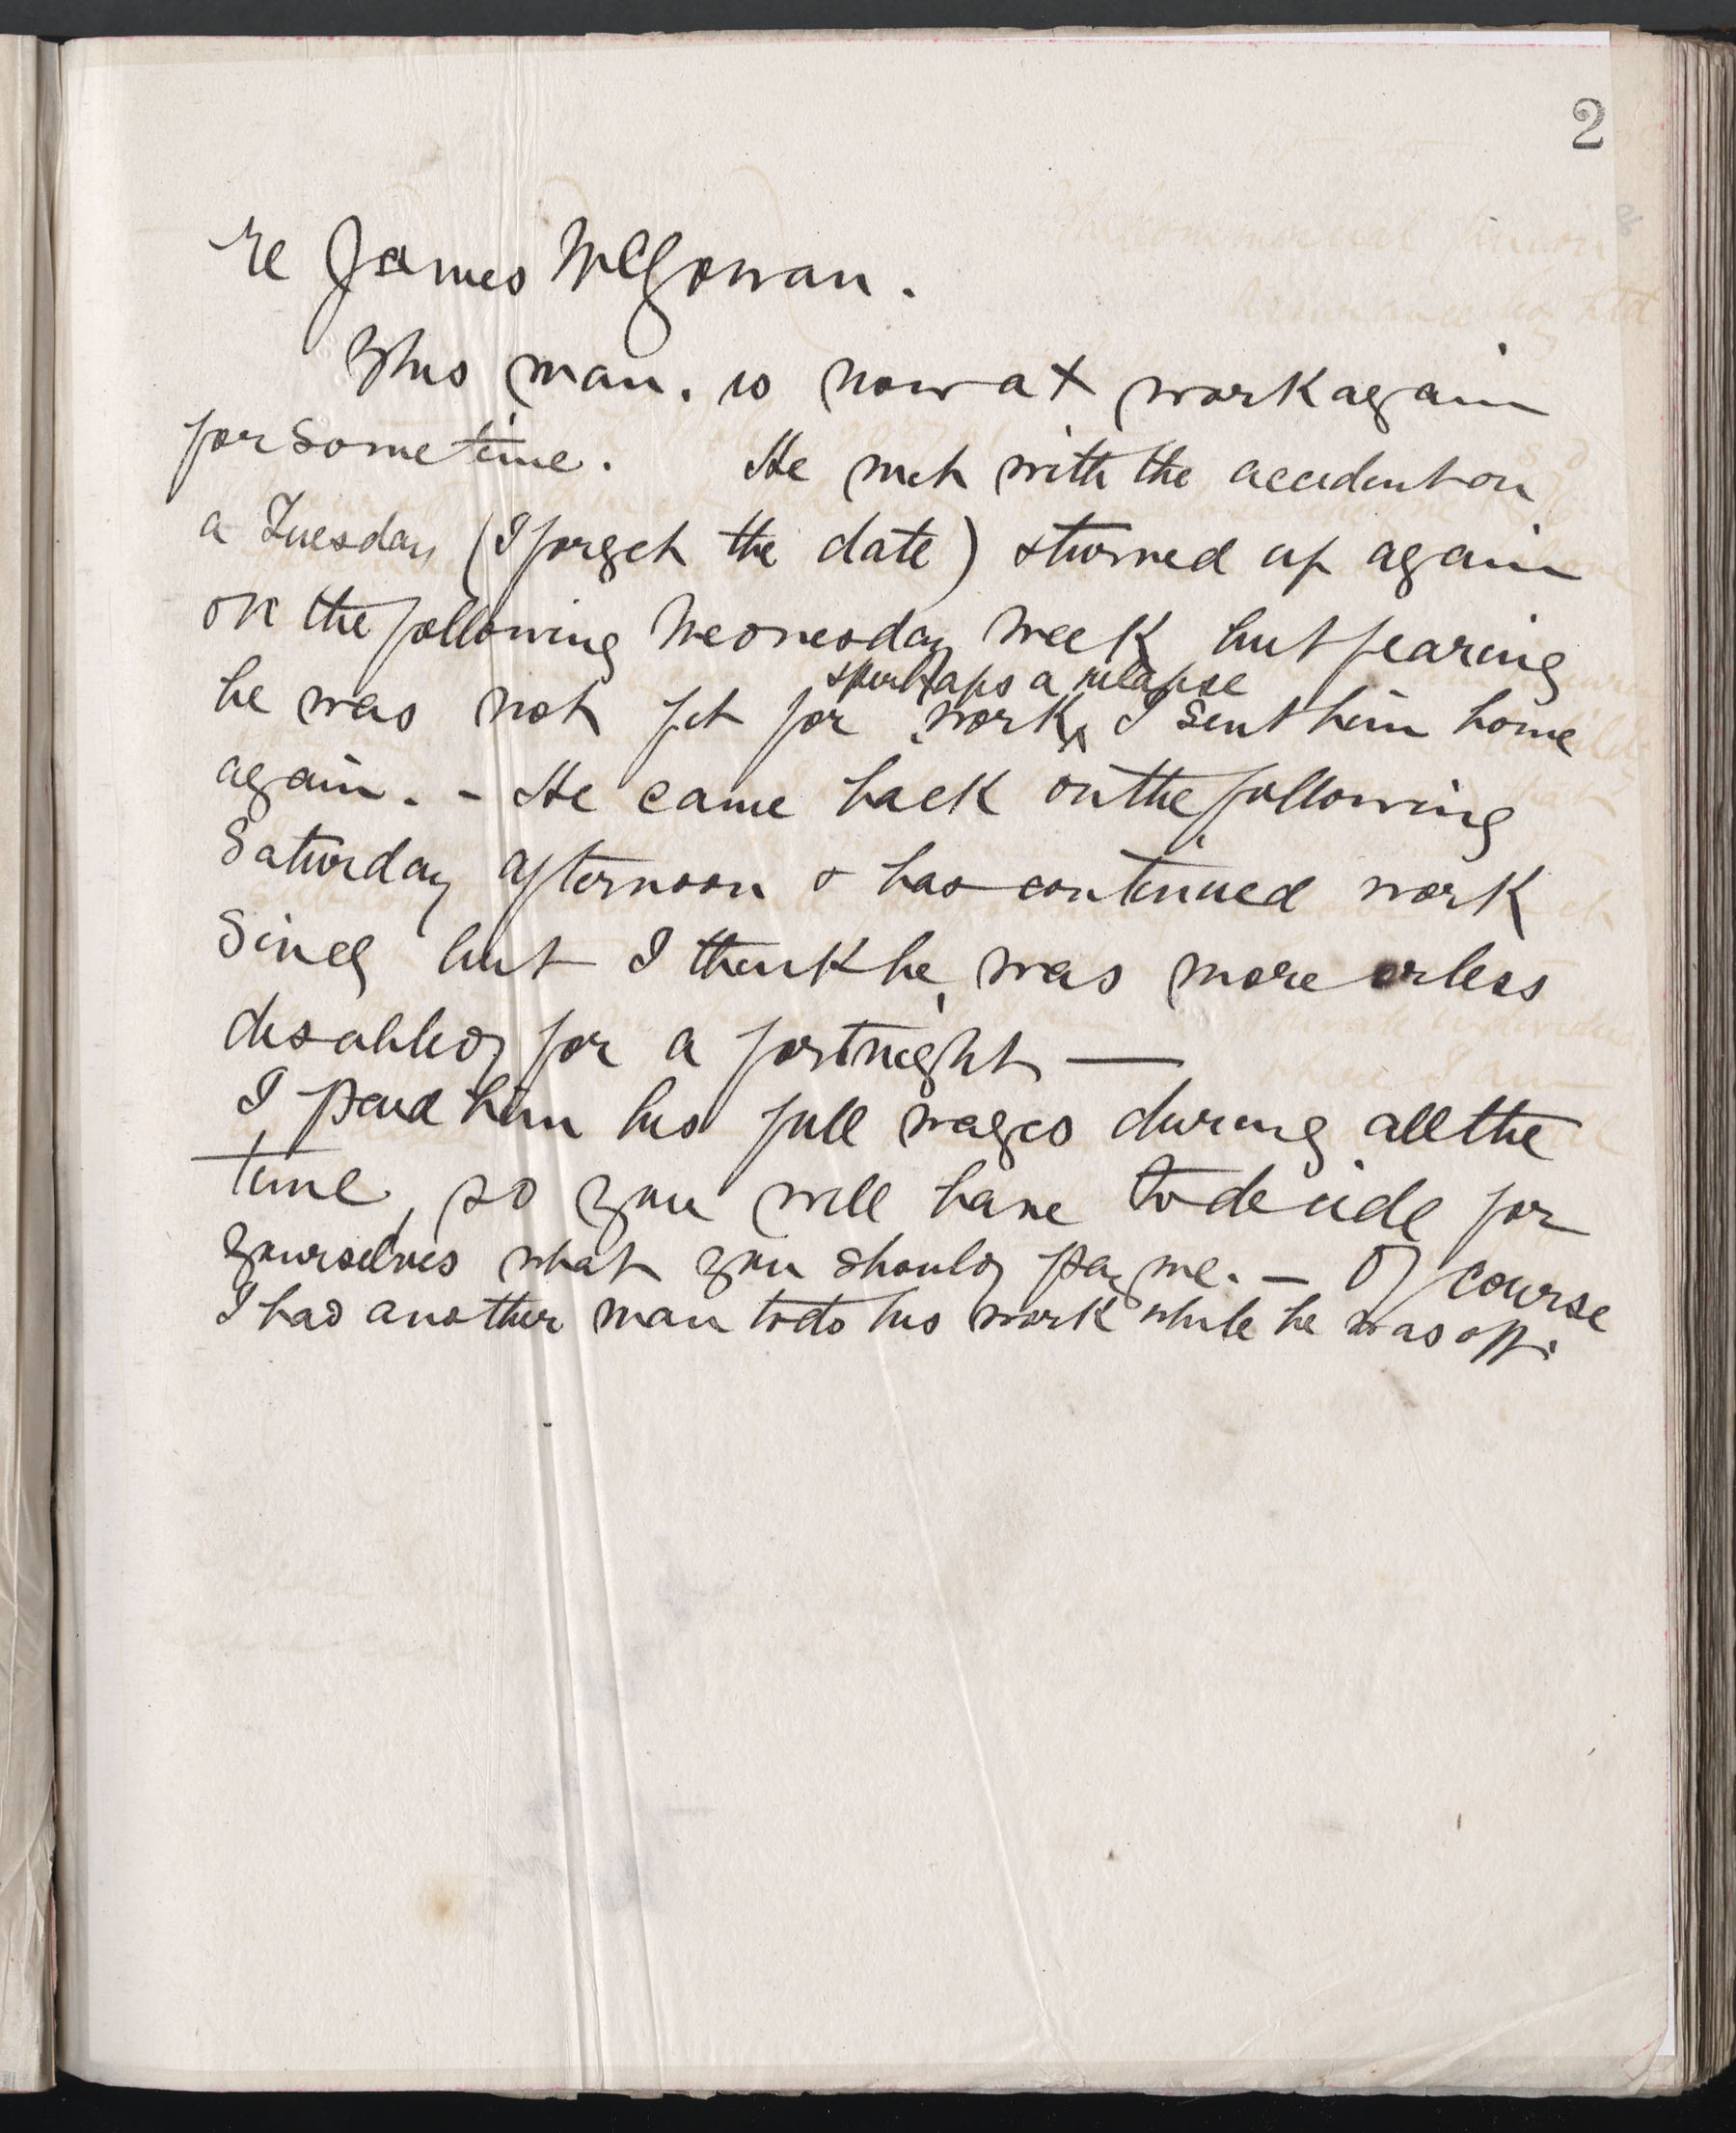 2
re James McGowan.
This man. is now at work again
for some time. He met with the accident on
a Tuesday (I forget the date) & turned up again
on the following Wednesday week but fearing
& perhaps a relapse
he was not fit for work I sent him home
again. - He came back on the following
Saturday afternoon & has continued work
since but I think he was more or less
disabled for a fortnight —
I paid him his full wages during all the
time, so you will have to decide for
yourselves what you should pay me. — Of course
I had another man to do his work while he was off.